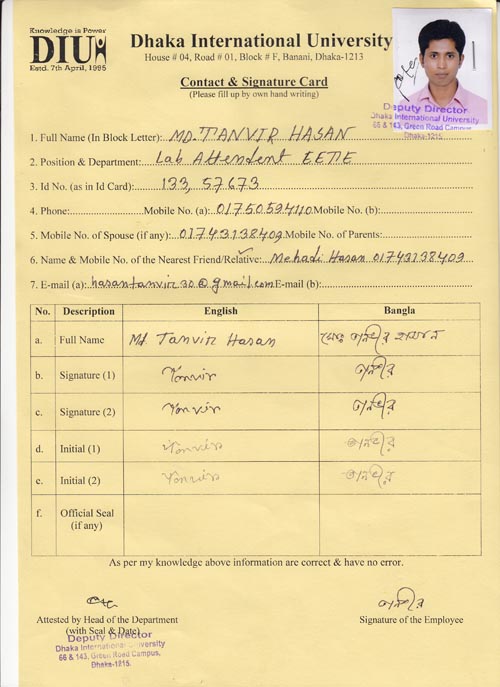 Knowledge is Power
DIU
Estd. 7th April, 1995
Dhaka International University
House # 04, Road # 01, Block # F, Banani, Dhaka-1213
Contact & Signature Card
(Please fill up by own hand writing)
Deputy Director
Dhaka International University
66 & 143, Green Road Campus,
Dhaka-1215.
1. Full Name (In Block Letter): MD. TANVIR HASAN
2. Position & Department: Lab Attendent EETE
3. Id No. (as in Id Card): 133, 57673
4. Phone: Mobile No. (a): Mobile No. (b):
5. Mobile No. of Spouse (if any): 01743138409 Mobile No. of Parents:
6. Name & Mobile No. of the Nearest Friend/Relative: Mehadi Hasan 01743138409
7. E-mail (a): hasantanvir30@gmail.com E-mail (b):
No. Description English Bangla
a. Full Name Md. Tanvir Hasan মোঃ তানভীর হাসান
b. Signature (1) Tanvir তানভীর
c. Signature (2) Tanvir তানভীর
d. Initial (1) Tanvir তানভীর
e. Initial (2) Tanvir তানভীর
f. Official Seal
(if any)
As per my knowledge above information are correct & have no error.
তানভীর
Attested by Head of the Department Signature of the Employee
(with Seal & Date)
Deputy Director
Dhaka International University
66 & 143, Green Road Campus,
Dhaka-1215.